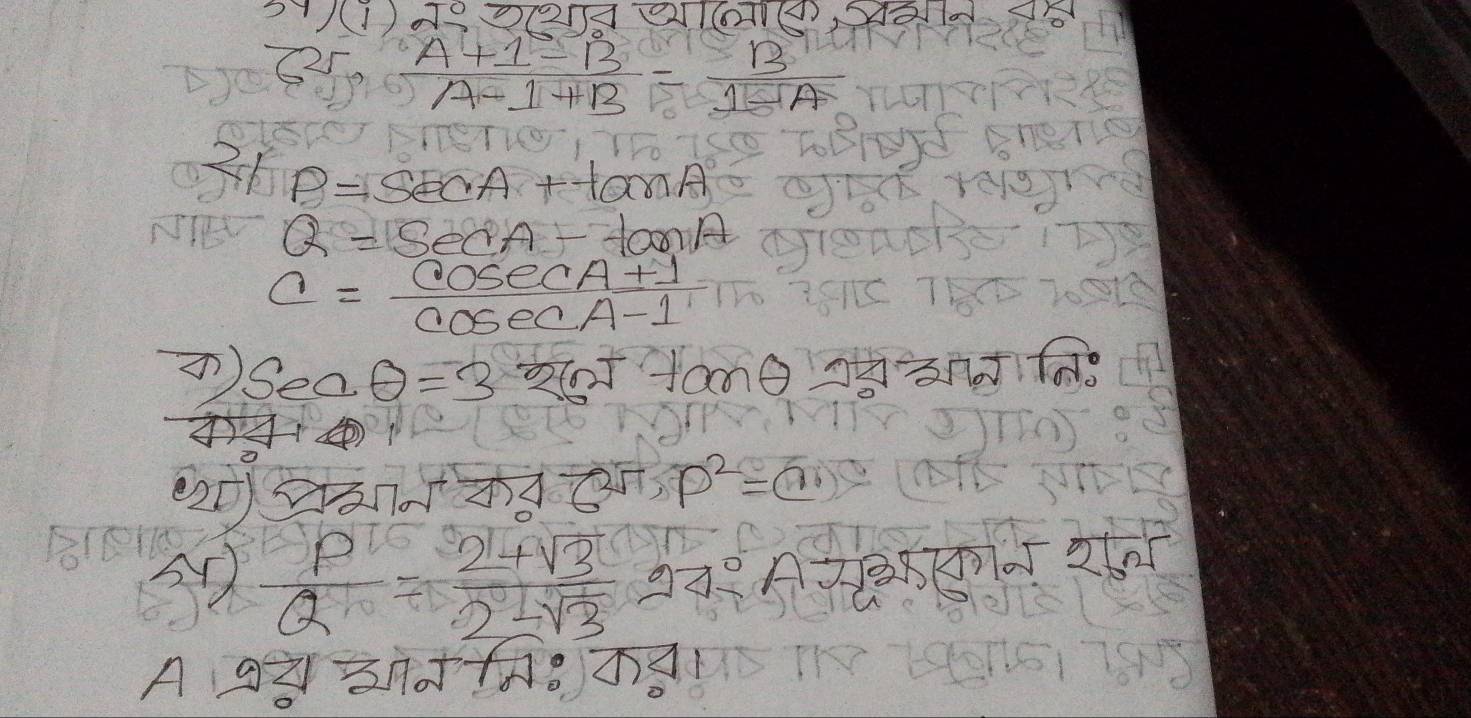 গ)(i) নং তথ্যের আলোকে, প্রমান কর
যে, (A+1-B)/(A-1+B) = B/(1-A)
২। P = SecA + tanA
Q = SecA - tanA
C = (cosecA+1)/(cosecA-1)
ক) Sec θ = 3 হলে tanθ এর মান নিঃ
কর।
খ) প্রমান কর যে, P² = C
গ) P/Q = (2+√3)/(2-√3) এবং A সূক্ষ্মকোন হলে
A এর মান নিঃ কর।